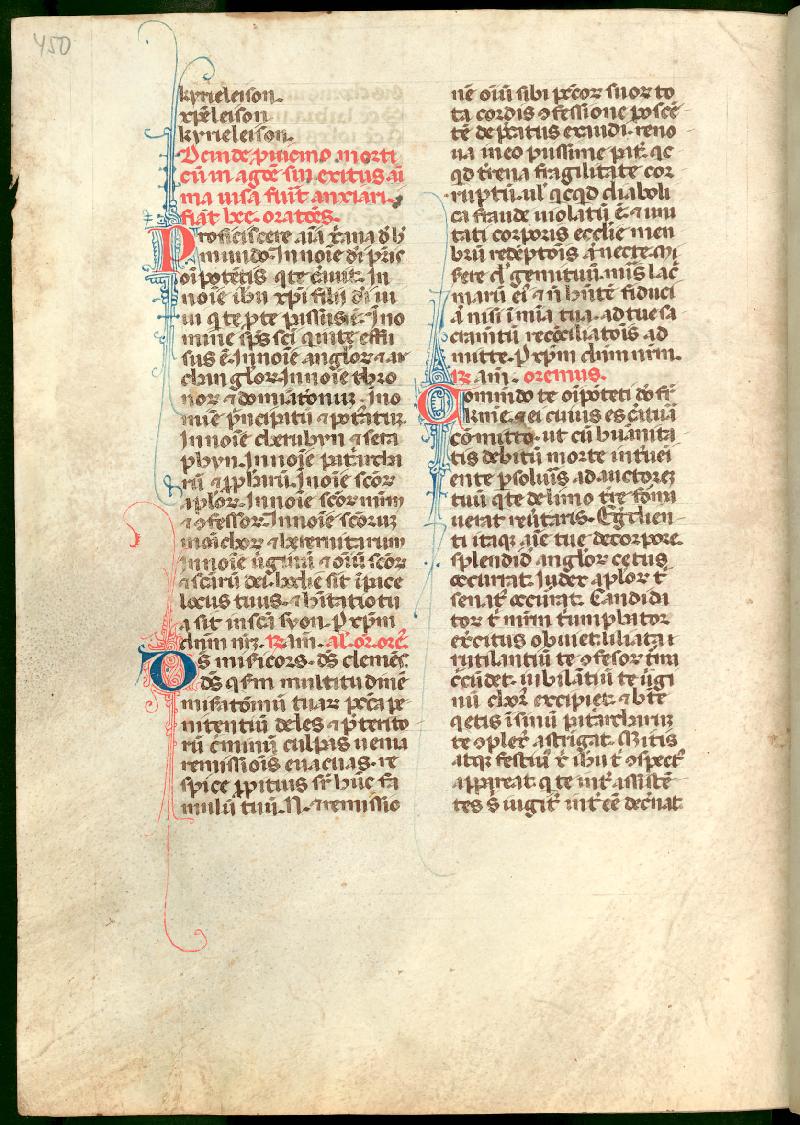 450
kyrieleison.
xp̃eleison
kyrieleison.
Deinde p̃ximo morti
cũ in agõe sui exitus aĩ
ma uisa fuit̃ anxiari.
fiãt hec oratões.
Proficiscere aĩa xp̃iana d̃ h̃
mundo. In noĩe dĩ pr̃is
oĩpotẽtis q te c̃auit. In
noĩe ihũ xp̃i filij dĩ ui
ui q te p̃te passus ẽ. Ino
mine sp̃s sc̃i qui ĩ te effu
sus ẽ. In noĩe anglor̃ ⁊ ar
changlor̃. In noĩe thro
nor̃ ⁊ domiatonuz. Ino
mie p̃ncipatũ ⁊ potãtuz.
In noĩe cherubyn ⁊ sera
phyn. In noĩe patarcha
rũ ⁊ ꝓphãrũ. Inoĩe sc̃or̃
ap̃lor̃. In noĩe sc̃or̃ mr̃m
⁊ ꝯfessor̃. In noĩe sc̃oruz
mõachor̃ ⁊ heremitarum
In noĩe ũginũ ⁊ oĩũ sc̃or̃
⁊ sc̃arũ dei. hodie sit ĩ pace
locus tuus. ⁊ hĩtatio tu
a sit in sc̃a syon. P xp̃m
dñm nr̃z. R̃ am̃. al̃. or. orõ.
Ds̃ misicors. ds̃ clemẽs.
ds̃ q s̃m multitudinẽ
miseratõnũ tuar̃ pc̃ca pe
nitentiũ deles ⁊ p̃terito
rũ c̃minũ culpas uenia
remissiõis euacuas. re
spice ꝓpitius sr̃ hũc fa
mulũ tuũ. N. ⁊ remissio
nẽ oĩũ sibi pc̃cor̃ suor̃ to
ta cordis ꝯfessione poscẽ
tẽ dep̃catus exaudi. reno
ua in eo pijssime pat̃. qc
qd t̃rena fragilitate cor
ruptũ. ul̃ qcqd diaboli
ca fraude uiolatũ ẽ. ⁊ uni
tati corporis ecclie men
brũ redẽptõis ãnecte. Mi
sere d̃. gemituũ. mis̃ lac̃
marũ ei̾ ⁊ ñ hñtẽ fiduci
ã nisi ĩ mĩa tua. ad tue sa
cramtũ recõciliatõis ad
mitte. P xp̃m dñm nr̃m.
R̃ am̃. oremus.
Comendo te oĩpotẽti d̃o fr̃
kr̃me. ⁊ ei cuius es c̃atura
cõmitto. ut cũ humanita
tis debitũ morte ĩtueni
ente p̃soluis ad auctorez
tuũ q te de limo tr̃e forma
uerat reũtaris. Eg̃dien
ti itaq; aĩe tue de corpore.
splendid̾ anglor̃ cetus
occurrat. Iudex ap̃lor̃ t̃
senat̃ occurrat. Candida
tor̃ t̃ mr̃m t̃umphator
exẽcitus obuiet. liliata r
rutilantiũ te ꝯfesor̃ t̃ma
c̃cũdet. iubilãtiũ te ũgi
nũ chor̃ excipiet. ⁊ bt̃e
qetis ĩ sinu pat̃archaruz
te ꝯplex̃ astrigat. Mitis
atq; festiu̾ x̃. ihũ t̃ ꝯspect̾
appareat. q te int̃ assistẽ
tes s̾ iugit̃ int̃ eẽ dec̃nat.